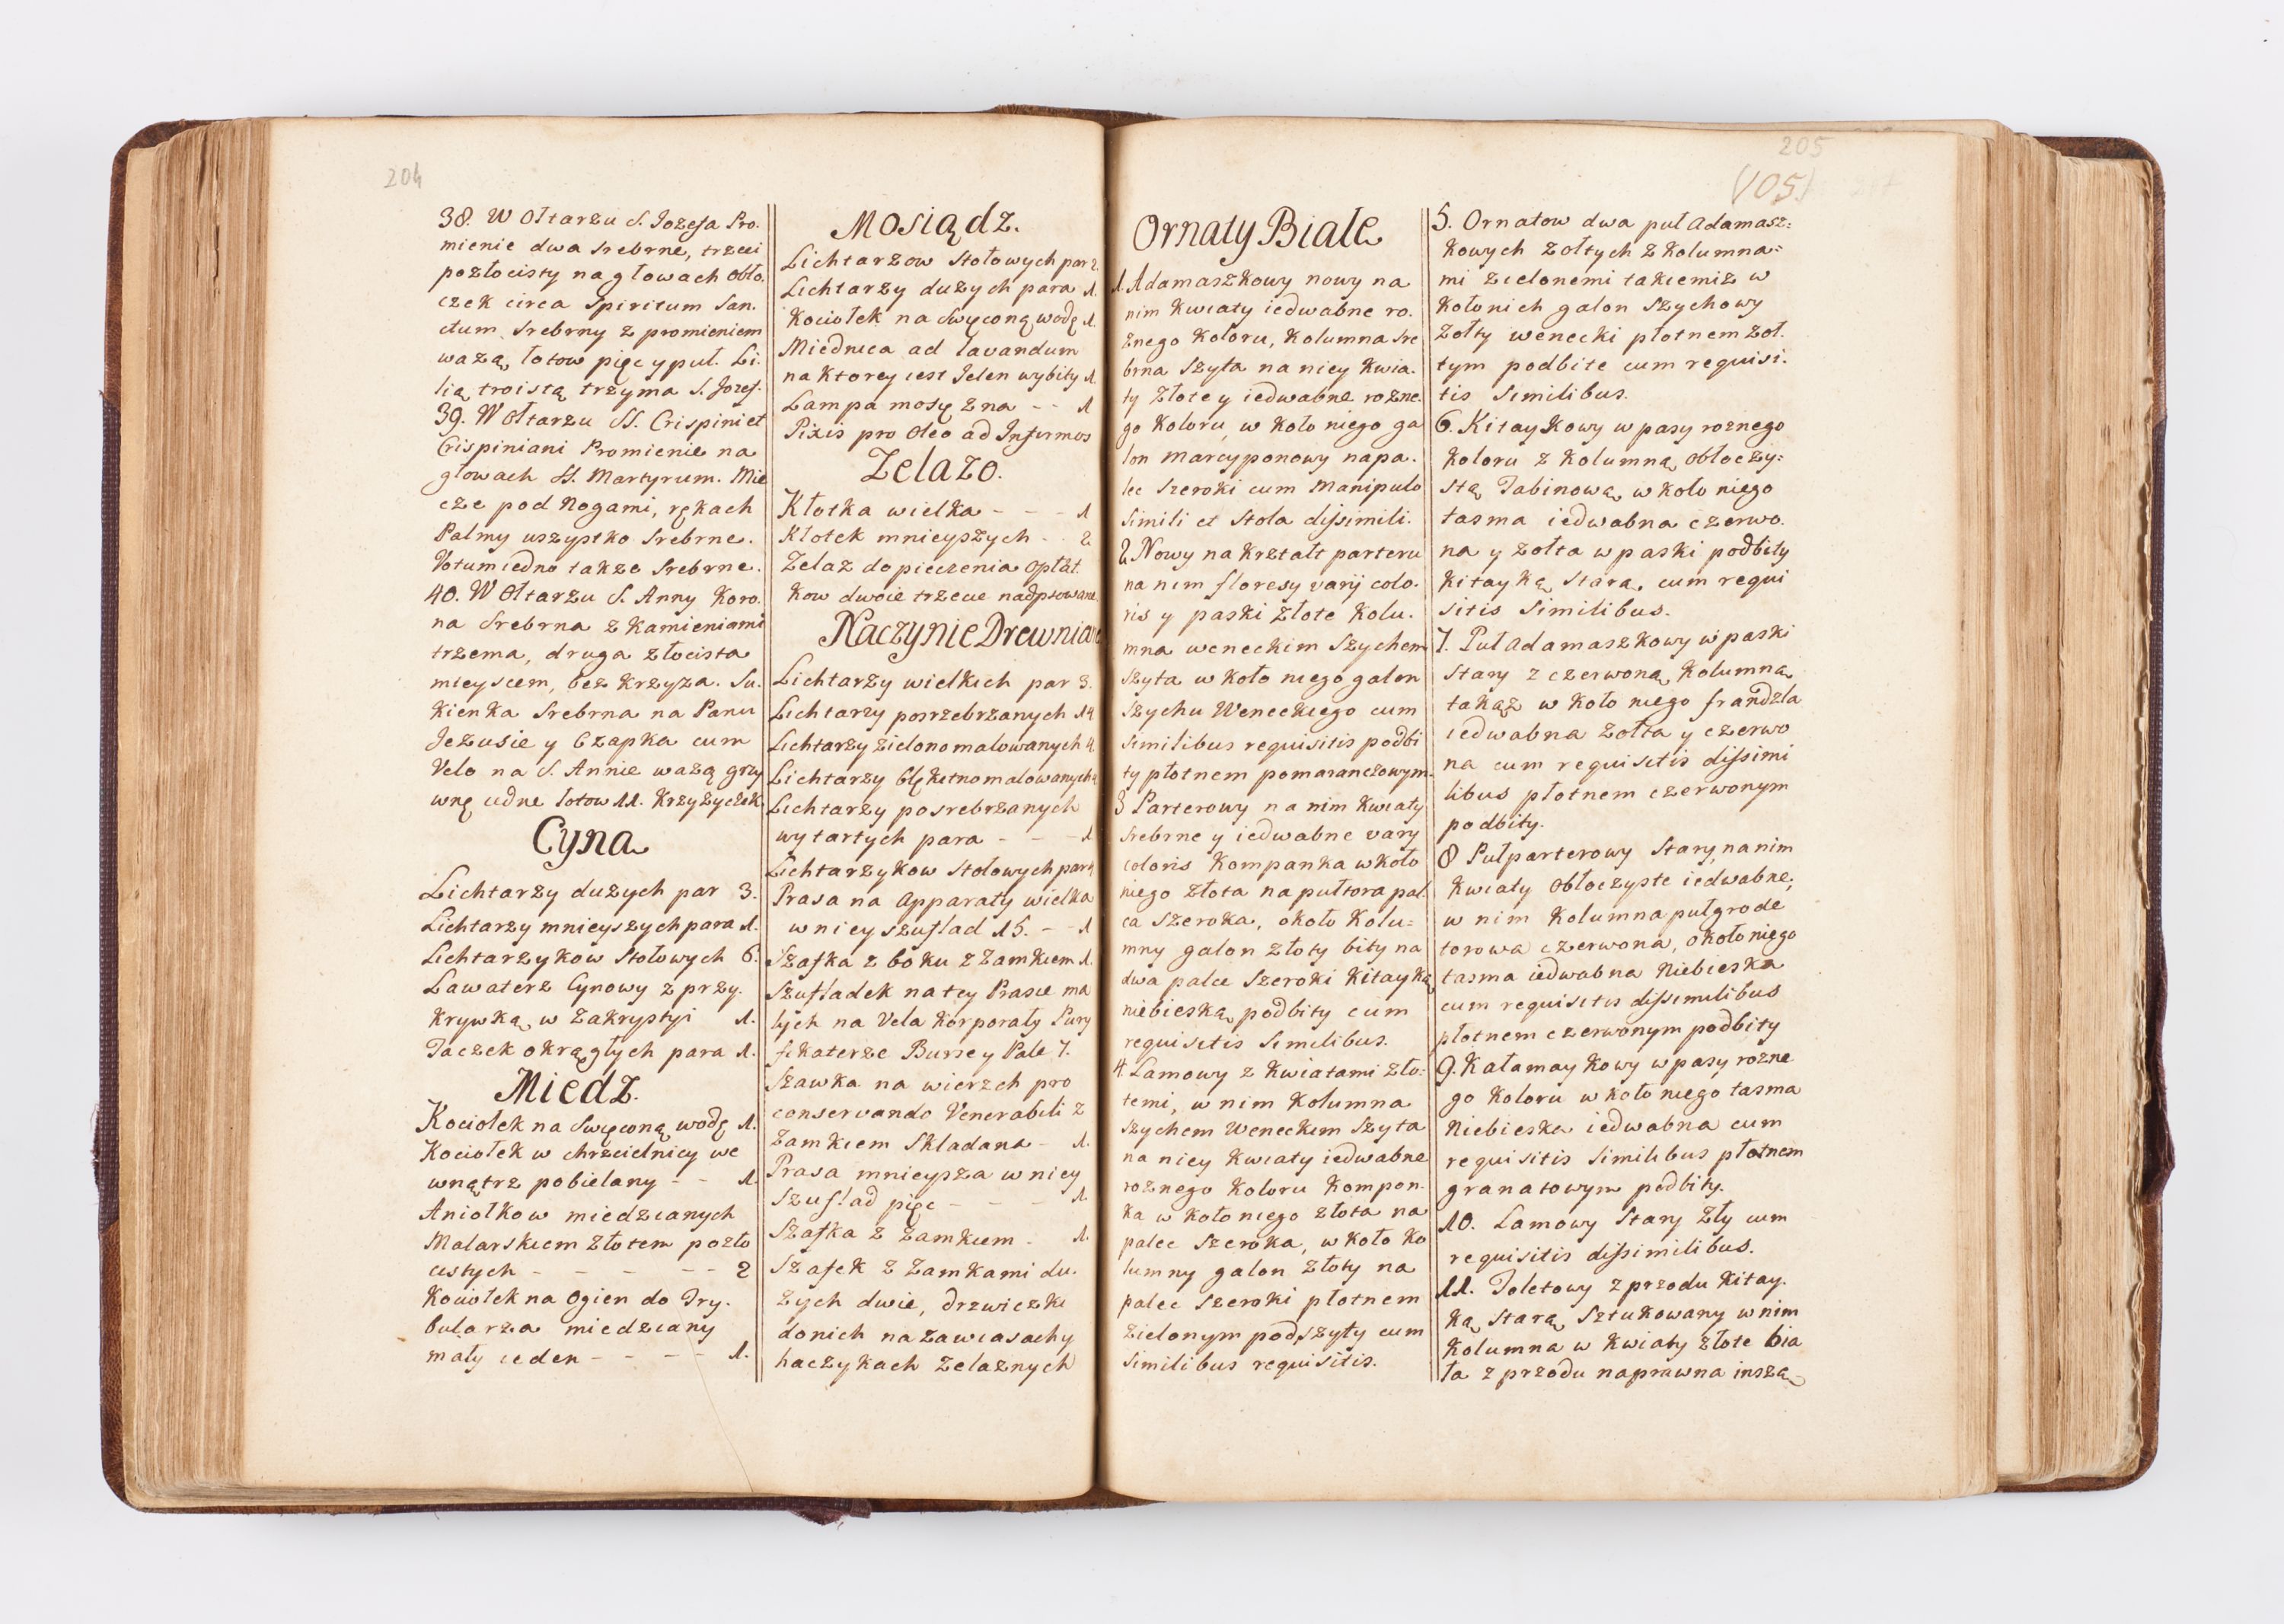 204
38. W Ołtarzu S. Jozefa Pro.
mienie dwa srebrne, trzeci
pozłocisty na głowach Obło.
czek circa Spiritum San.
ctum srebrny z promieniem
ważą, łotow pięc y puł. Li.
lią troistą trzyma S. Jozef.
39. W Ołtarzu SS. Crispini et
Crispiniani Promienie na
głowach SS. Martyrum. Mie
cze pod Nogami, rękach
Palmy wszystko Srebrne.
Votum iedno także Srebrne.
40. W Ołtarzu S. Anny Koro.
na Srebrna z Kamieniami
trzema, druga złocista
mieyscem, bez Krzyża. Su.
kienka Srebrna na Panu
Jezusie y Czapka cum
Velo na S. Annie ważą grzy
wnę iedne łotow 11. Krzyżyczek
Cyna
Lichtarzy dużych par 3.
Lichtarzy mnieyszych para 1.
Lichtarzykow Stołowych 6.
Lawaterz Cynowy z przy.
krywką w Zakrystyi 1.
Taczek okrągłych para 1.
Miedz.
Kociołek na Swięconą wodę 1.
Kociołek w chrzcielnicy we
wnątrz pobielany - - 1.
Aniołkow miedzianych
Malarskiem złotem pozło
cistych - - - - - 2
Kociołek na Ogien do Try.
bularza miedziany
mały ieden - - - - 1.
Mosiądz.
Lichtarzow Stołowych par 2.
Lichtarzy dużych para 1.
Kociołek na Swyconą wodę 1.
Miednica ad lavandum
na ktorey iest Jelen wybity 1.
Lampa mosyęzna - - 1
Pixis pro Oleo ad Infirmos
Zelazo.
Kłotka wielka - - - 1
Kłotek mnieyszych - - 2
Zelaz do pieczenia Opłat.
kow dwoie trzecie nadpsowane
Naczynie Drewniane
Lichtarzy wielkich par 3.
Lichtarzy posrzebrzanych 14
Lichtarzy zielono malowanych 4.
Lichtarzy błękitno malowanych 4
Lichtarzy posrebrzanych
wytartych para - - - 1
Lichtarzykow Stołowych par 4
Prasa na Apparaty wielka
w niey szuflad 15. - - 1
Szafka z boku z Zamkiem 1.
Szufladek na tey Prasie ma
łych na Vela Korporały Pury
fikaterze Bursey Pale 7.
Szawka na wierzch pro
conservando Venerabili z
Zamkiem Skladana - 1.
Prasa mnieysza w niey
Szuflad pięc - - - 1.
Szafka z Zamkiem - 1.
Szafek z Zamkami du.
żych dwie, drzwiczki
do nich na Zawiasach y
haczykach Zelaznych
205
(105)
Ornaty Białe
1. Adamaszkowy nowy na
nim kwiaty iedwabne ro.
żnego koloru, kolumna sre
brna Szyta na niey kwia.
ty złote y iedwabne rożne.
go koloru, w koło niego ga
lon marcyponowy na pa.
lec szeroki cum Manipulo
simili et Stola dissimili.
2. Nowy na krztałt parteru
na nim floresy varij colo.
ris y paski złote kolu.
mna weneckim Szychem
szyta w koło niego galon
szychu Weneckiego cum
similibus requisitis podbi
ty płotnem pomaranczowym.
3 Parterowy na nim kwiaty
srebrne y iedwabne vary
coloris kompanka w koło
niego złota na pułtora pal.
ca szeroka, około kolu=
mny galon złoty bity na
dwa palce szeroki kitayką
niebieską podbity cum
requisitis similibus.
4. Lamowy z kwiatami zło=
temi, w nim kolumna
szychem Weneckim Szyta
na niey kwiaty iedwabne
rożnego koloru kompon.
ka w koło niego złota na
palec szeroka, w koło ko
lumny galon złoty na
palec szeroki płotnem
zielonym podszyty cum
similibus requisitis.
5. Ornatow dwa puł Adamasz=
kowych żołtych z kolumna=
mi zielonemi takiemiż w
koło nich galon szychowy
żołty wenecki płotnem żoł.
tym podbite cum requisi.
tis similibus.
6. Kitaykowy w pasy rożnego
koloru z kolumną obłoczy=
stą Tabinową, w koło niego
tasma iedwabna czerwo.
na y żołta w paski podbity
kitayką starą, cum requi
sitis similibus.
7. Puł Adamaszkowy w paski
stary z czerwoną kolumną
takąż w koło niego frandzla
iedwabna żołta y czerwo
na cum requisitis dissimi
libus płotnem czerwonym
podbity.
8 Pułparterowy Stary, na nim
kwiaty obłoczyste iedwabne,
w nim kolumna pułgrode
torowa czerwona, około niego
tasma iedwabna Niebieska
cum requisitis dissimilibus
płotnem czerwonym podbity
9. Kałamaykowy w pasy rożne
go koloru w koło niego tasma
Niebieska iedwabna cum
requisitis similibus płotnem
granatowym podbity.
10. Lamowy Stary zły cum
requisitis dissimilibus.
11. Toletowy z przodu kitay.
ką starą Sztukowany w nim
kolumna w kwiaty złote bia
ła z przodu naprawna inszą